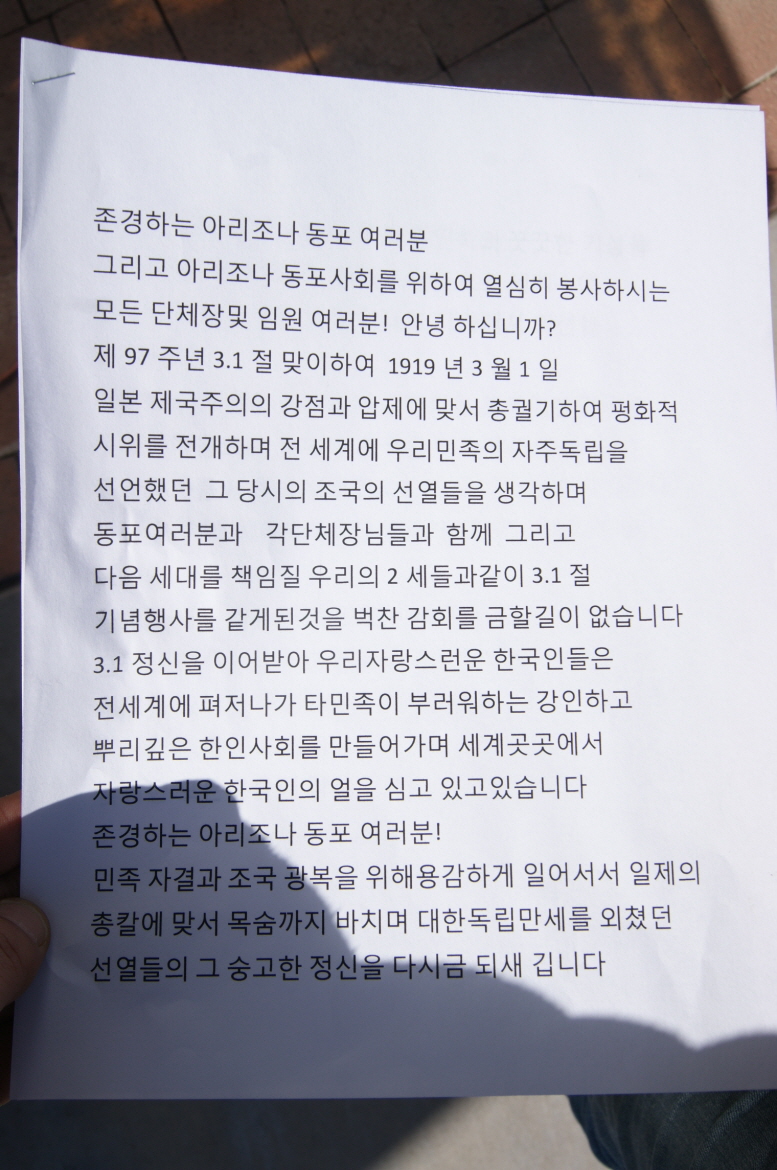 존경하는 아리조나 동포 여러분
그리고 아리조나 동포사회를 위하여 열심히 봉사하시는
모든 단체장및 임원 여러분! 안녕 하십니까?
제 97 주년 3.1 절 맞이하여 1919 년 3 월 1 일
일본 제국주의의 강점과 압제에 맞서 총궐기하여 펑화적
시위를 전개하며 전 세계에 우리민족의 자주독립을
선언했던 그 당시의 조국의 선열들을 생각하며
동포여러분과 각단체장님들과 함께 그리고
다음 세대를 책임질 우리의 2 세들과같이 3.1 절
기념행사를 같게된것을 벅찬 감회를 금할길이 없습니다
3.1 정신을 이어받아 우리자랑스런운 한국인들은
전세계에 펴저나가 타민족이 부러워하는 강인하고
뿌리깊은 한인사회를 만들어가며 세계곳곳에서
자랑스러운 한국인의 얼을 심고 있고있습니다
존경하는 아리조나 동포 여러분!
민족 자결과 조국 광복을 위해용감하게 일어서서 일제의
총칼에 맞서 목숨까지 바치며 대한독립만세를 외쳤던
선열들의 그 숭고한 정신을 다시금 되새 깁니다